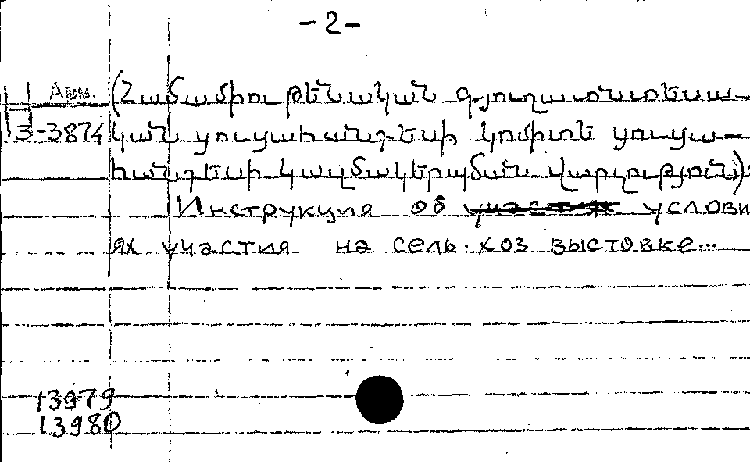 -2-
Арм. (Համամիութենական գյուղատնտեսա-
3-3874 կան ցուցահանդեսի կոմիտե ցուցա-
հանդեսի կազմակերպման վարչություն):
Инструкция об участиях услови
ях участия на сель.хоз выстовке...
13979
13980